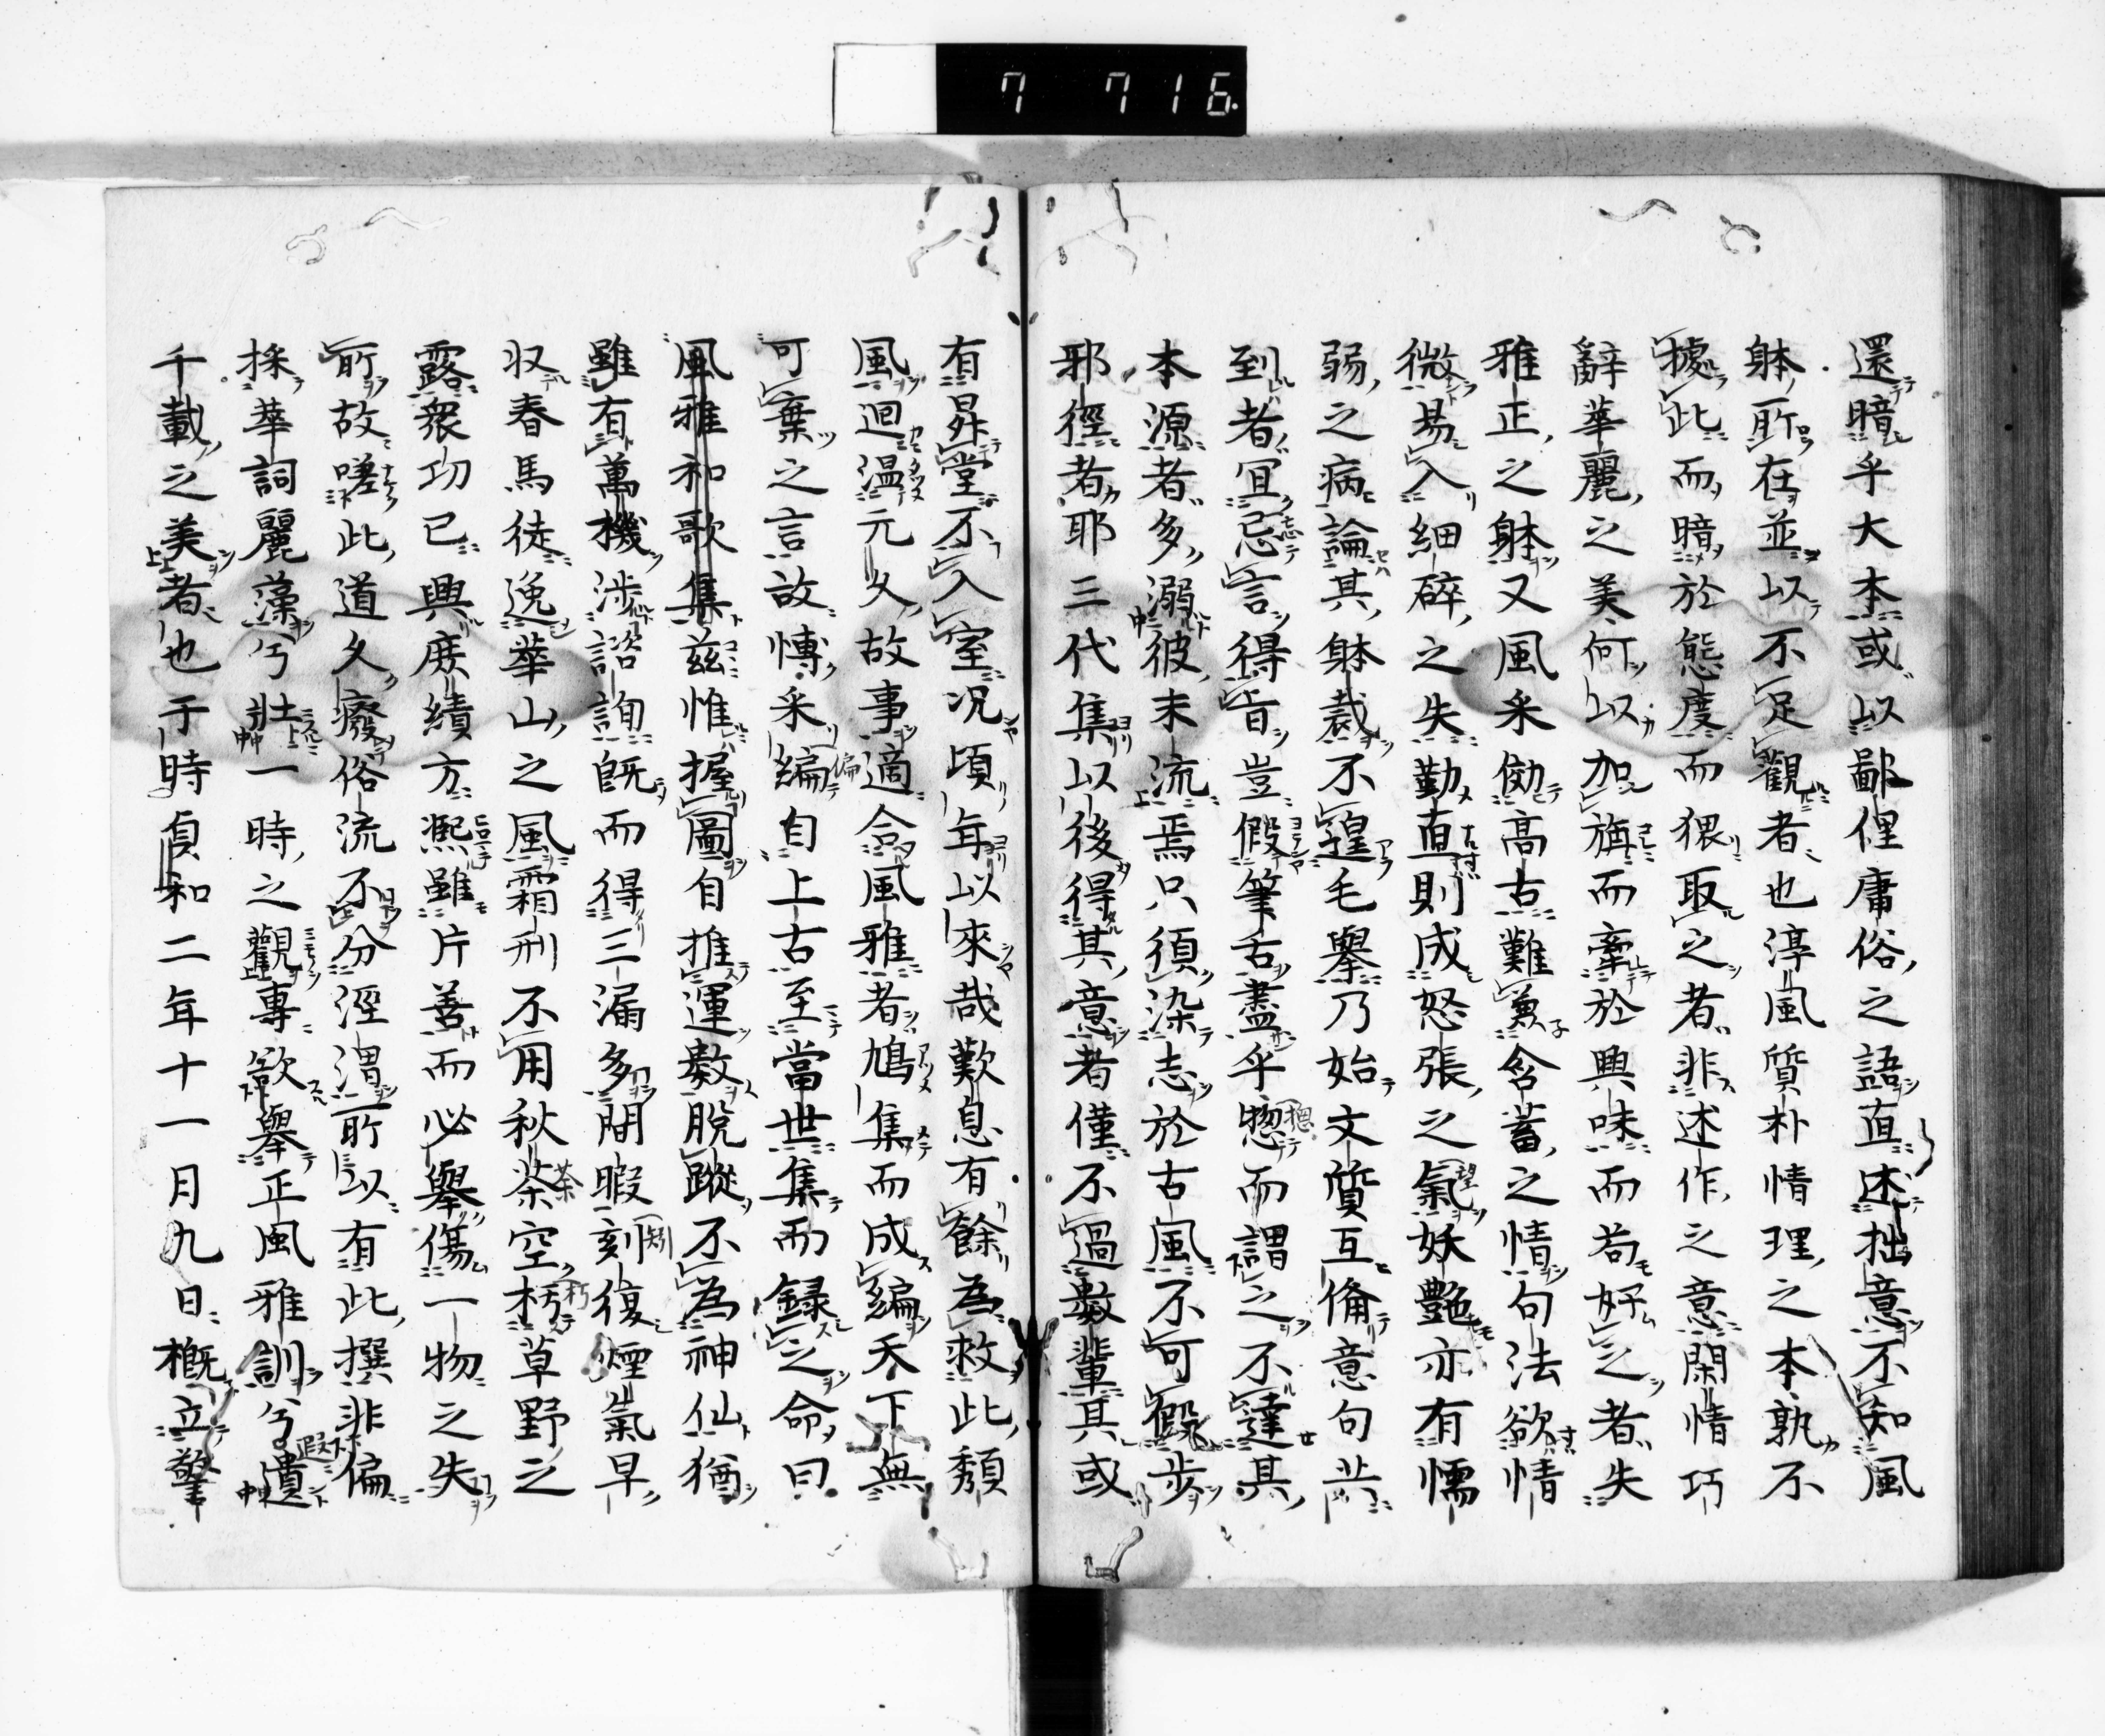 7 716.
還暗乎大本或以鄙俚庸俗之語直述拙意不知風
躰所在並以不足觀者也淳風質朴情理之本孰不
據此而暗於態度而猥取之者非述作之意閑情巧
辭華麗之美何以加旃而牽於興味而苟好之者失
雅正之躰又風采㓛高古難兼含蓄之情句法欲情
微易入細碎之失勤直則成怒張之氣妖艷亦有懦
弱之病論其躰裁不遑毛擧乃始文質互備意句共
到者宜忘言得旨豈假筆舌盡乎惣而謂之不達其
本源者多溺彼末流焉只須染志於古風不可假步
邪徑者耶三代集以後得其意者僅不過數輩其或
有昇堂不入室况頃年以來哉歎息有餘為救此頽
風迴温元久故事適合風雅者鳩集而成編天下無
可棄之言故慱采編自上古至當世集而録之命曰
風雅和歌集茲惟握圖自推運數脫蹤不為神仙猶
雖有萬機涉諮詢既而得三漏多間暇刻復煙氣早
収春馬徒逸華山之風霜刑不用秋荼空朽草野之
露衆功已興庶績方熙雖片善而必擧傷一物之失
所故嗟此道久癈俗流不分涇渭所以有此撰非偏
採華詞麗藻兮壯一時之觀專欲擧正風雅訓兮遺
千載之美者也于時貞和二年十一月九日概立警